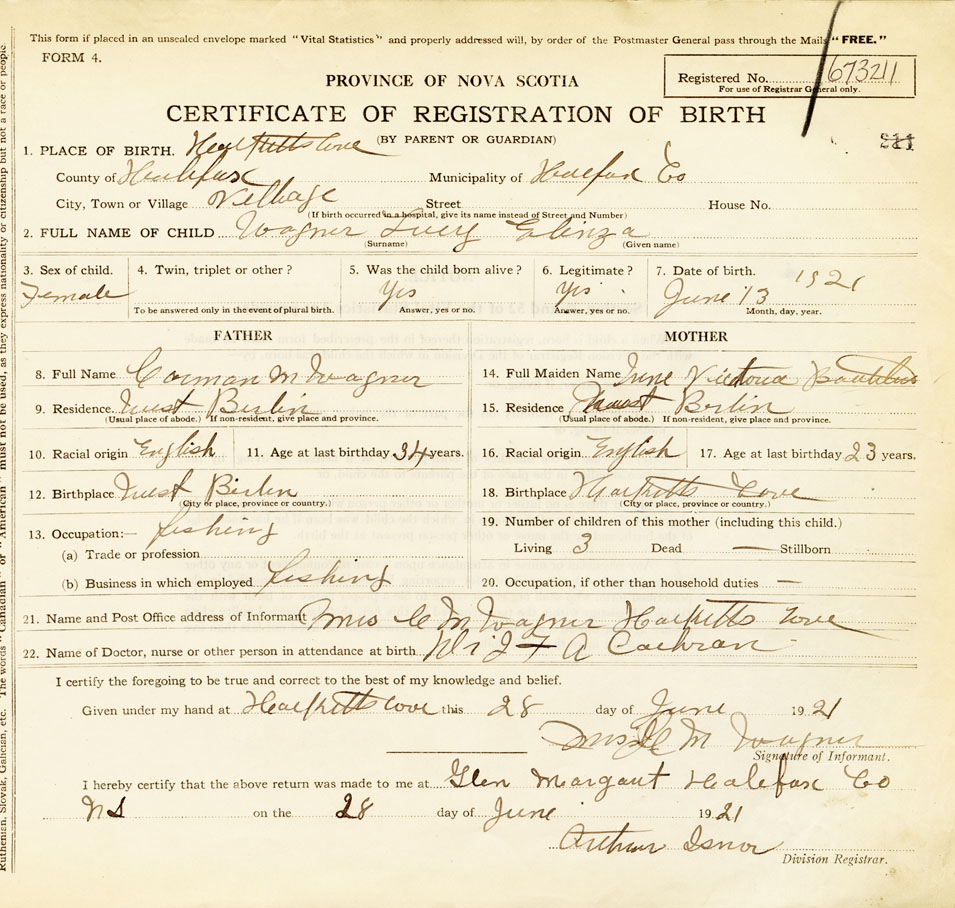 This form if placed in an unsealed envelope marked "Vital Statistics" and properly addressed will, by order of the Postmaster General pass through the Mails "FREE."
FORM 4.
PROVINCE OF NOVA SCOTIA
Registered No. 673211
For use of Registrar General only.
CERTIFICATE OF REGISTRATION OF BIRTH
(BY PARENT OR GUARDIAN)
211
1. PLACE OF BIRTH. Hacketts Cove
County of Halifax Municipality of Halifax Co
City, Town or Village Village Street House No.
(If birth occurred in a hospital, give its name instead of Street and Number)
2. FULL NAME OF CHILD Wagner Lucy
(Surname) (Given name)
3. Sex of child. 4. Twin, triplet or other? 5. Was the child born alive? 6. Legitimate? 7. Date of birth. 1921
Female Yes Yes June 13
To be answered only in the event of plural birth. Answer, yes or no. Answer, yes or no. Month, day, year.
FATHER MOTHER
8. Full Name M Wagner 14. Full Maiden Name Irene Victoria
9. Residence West Berlin 15. Residence West Berlin
(Usual place of abode.) If non-resident, give place and province. (Usual place of abode.) If non-resident, give place and province.
10. Racial origin English 11. Age at last birthday 34 years. 16. Racial origin English 17. Age at last birthday 23 years.
12. Birthplace West Berlin 18. Birthplace Hacketts Cove
(City or place, province or country.) (City or place, province or country.)
13. Occupation:— fishing 19. Number of children of this mother (including this child.)
(a) Trade or profession Living 3 Dead — Stillborn
(b) Business in which employed fishing 20. Occupation, if other than household duties —
21. Name and Post Office address of Informant Mrs C M Wagner Hacketts Cove
22. Name of Doctor, nurse or other person in attendance at birth Dr J F A Cochran
I certify the foregoing to be true and correct to the best of my knowledge and belief.
Given under my hand at Hacketts Cove this 28 day of June 1921
Mrs C M Wagner
Signature of Informant.
I hereby certify that the above return was made to me at Glen Margaut Halifax Co
N S on the 28 day of June 1921
Arthur Isnor
Division Registrar.
Ruthenian, Slovak, Galician, etc. The words "Canadian" or "American" must not be used, as they express nationality or citizenship but not a race or people.